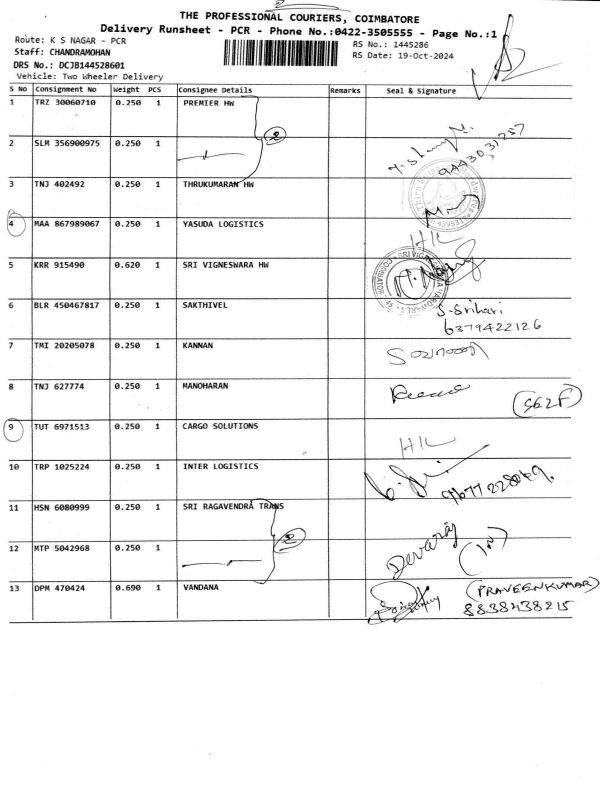 THE PROFESSIONAL COURIERS, COIMBATORE
Delivery Runsheet - PCR - Phone No.:0422-3505555 - Page No.:1
Route: K S NAGAR - PCR
RS No.: 1445286
Staff: CHANDRAMOHAN
RS Date: 19-Oct-2024
DRS No.: DCJB144528601
Vehicle: Two Wheeler Delivery
S No Consignment No Weight PCS Consignee Details Remarks Seal & Signature
1 TRZ 30060710 0.250 1 PREMIER HW
2
2 SLM 356900975 0.250 1
9443031257
3 TNJ 402492 0.250 1 THRUKUMARAN HW
4 MAA 867989067 0.250 1 YASUDA LOGISTICS
5 KRR 915490 0.620 1 SRI VIGNESWARA HW
6 BLR 450467817 0.250 1 SAKTHIVEL S.Srihari
6379422126
7 TMI 20205078 0.250 1 KANNAN
8 TNJ 627774 0.250 1 MANOHARAN
9 TUT 6971513 0.250 1 CARGO SOLUTIONS
10 TRP 1025224 0.250 1 INTER LOGISTICS
11 HSN 6080999 0.250 1 SRI RAGAVENDRA TRANS
2
12 MTP 5042968 0.250 1 Devaraj
13 DPM 470424 0.690 1 VANDANA (PRAVEENKUMAR)
8838438215